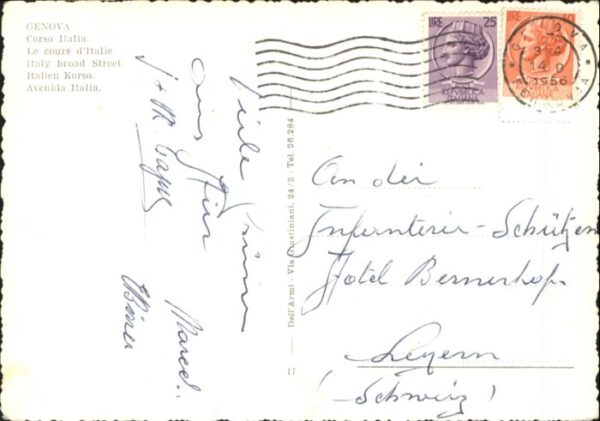 GENOVA
Corso Italia.
Le cours d'Italie.
Italy broad Street.
Italien Korso.
Avenida Italia.
Viele Grüsse
aus
Marcel.
Dell'Armi - Via Giustiniani, 24/2 - Tel. 26.284
17
LIRE 25
REPVBBLICA
ITALIANA
LIRE
REPVBBLICA
ITALIANA
GENOVA
14 9
1956
An die
Infanterie-Schützen
Hotel Bernerhof
Luzern
(Schweiz)